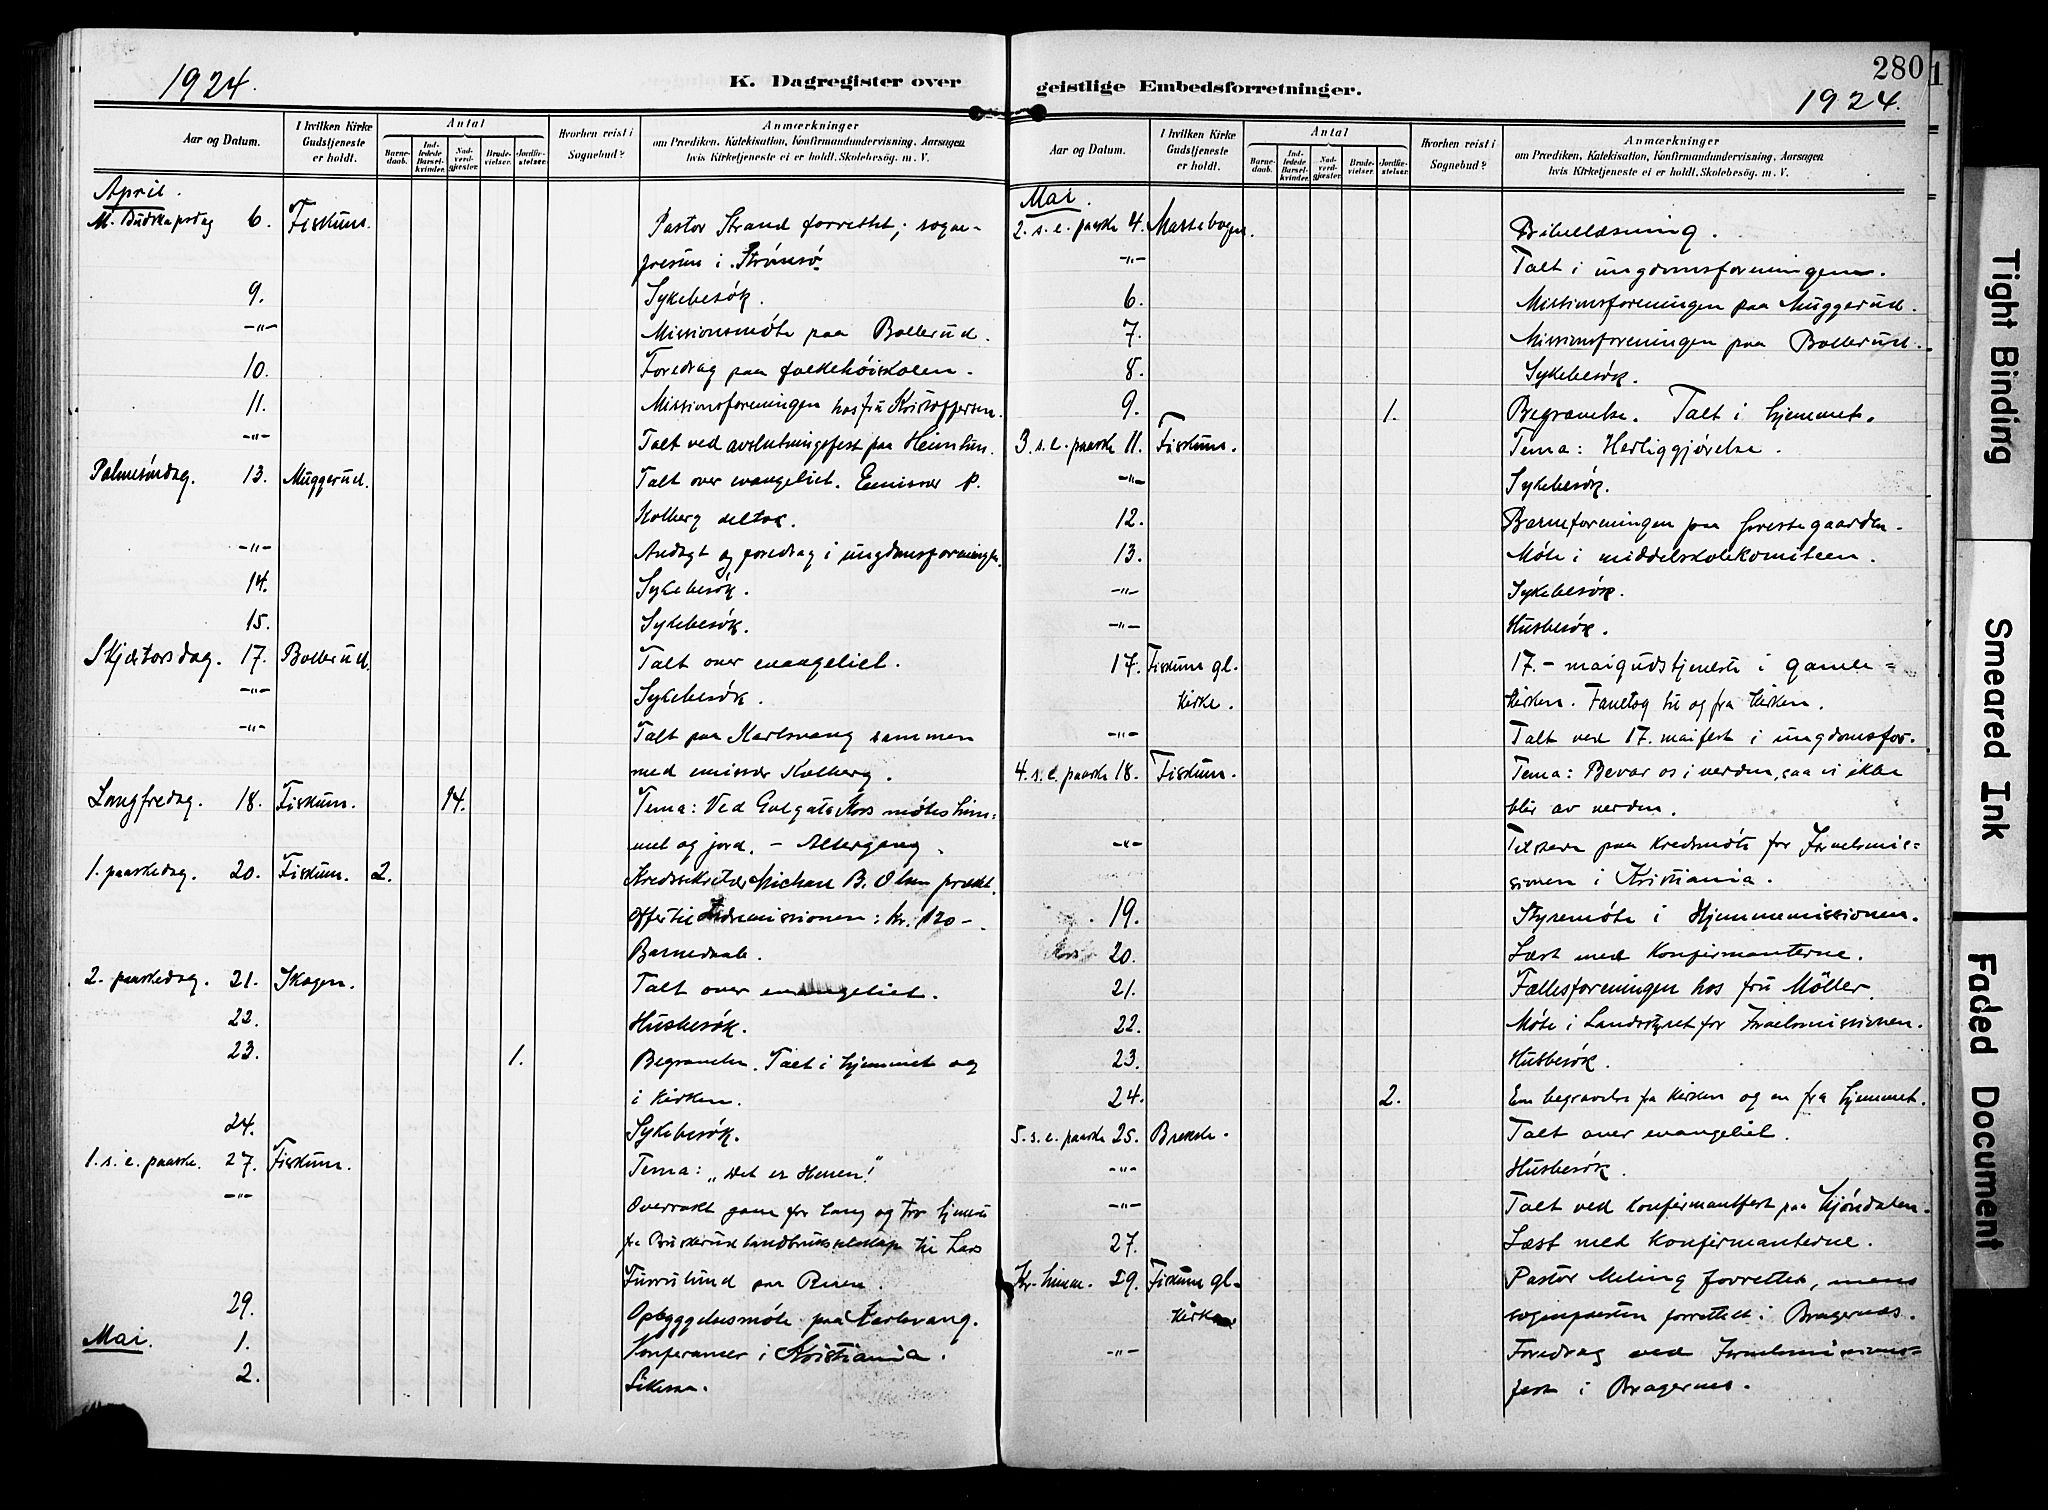 280
1924.
K. Dagregister over
geistlige Embedsforretninger.
1924.
Aar og Datum.
I hvilken Kirke Gudstjeneste er holdt.
Antal
Barnedaab.
Indledede Barselkvinder.
Nadverdgjæster.
Brudevielser.
Jordfæstelser.
Hvorhen reist i Sognebud?
Anmærkninger
om Prædiken, Katekisation, Konfirmandundervisning, Aarsagen
hvis Kirketjeneste ei er holdt, Skolebesøg. m. V.
April.
M. Budskapsdag 6. Fiskum. Pastor Strand forrettet; sogne-
presten i Strømsø.
9. Sykebesøk.
-"- Missionsmøte paa Bollerud.
10. Foredrag paa folkehøiskolen.
11. Missionsforeningen hos fru Kristoffersen.
-"- Talt ved avslutningsfest paa Heimtun.
Palmesøndag. 13. Muggerud. Talt over evangeliet. Emissær P.
Kolberg deltok.
-"- Andagt og foredrag i ungdomsforeningen.
14. Sykebesøk.
15. Sykebesøk.
Skjærtorsdag. 17. Bollerud. Talt over evangeliet.
-"- Sykebesøk.
-"- Talt paa Karlsvang sammen
med emissær Kolberg.
Langfredag. 18. Fiskum. 14. Tema: Ved Golgata Kors møtes him-
mel og jord. - Altergang.
1. paaskedag. 20. Fiskum. 2. Kredssekretær Michael B. Olsen prækt.
Offer til Indremissionen: kr. 120-.
Barnedaab.
2. paaskedag. 21. Skogen. Talt over evangeliet.
22. Husbesøk.
23. 1. Begravelse. Talt i hjemmet og
i kirken.
24. Sykebesøk.
1. s. e. paaske. 27. Fiskum. Tema: „Det er Herren!"
-"- Overrakt gave for lang og tro tjeneste
fra Buskerud landbruksselskap til Lars
Furulund paa
29. Opbyggelsesmøte paa Karlsvang.
Mai. 1. Konferanser i Kristiania.
2. Likesaa.
Aar og Datum.
I hvilken Kirke Gudstjeneste er holdt.
Antal
Barnedaab.
Indledede Barselkvinder.
Nadverdgjæster.
Brudevielser.
Jordfæstelser.
Hvorhen reist i Sognebud?
Anmærkninger
om Prædiken, Katekisation, Konfirmandundervisning, Aarsagen
hvis Kirketjeneste ei er holdt, Skolebesøg. m. V.
Mai.
2. s. e. paaske 4. Massebogen. Bibellæsning.
-"- Talt i ungdomsforeningen.
6. Missionsforeningen paa Muggerud.
7. Missionsforeningen paa Bollerud.
8. Sykebesøk.
9. 1. Begravelse. Talt i hjemmet.
3. s. e. paaske 11. Fiskum. Tema: Herliggjørelse.
-"- Sykebesøk.
12. Barneforeningen paa Prestegaarden.
13. Møte i middelskolekomiteen.
-"- Sykebesøk.
-"- Husbesøk.
17. Fiskum gl. 17.-maigudstjeneste i gamle-
kirke. kirken. Fanetog til og fra kirken.
-"- Talt ved 17. maifest i ungdomsfor.
4. s. e. paaske 18. Fiskum. Tema: Bevar os i verden, saa vi ikke
blir av verden.
-"- Talt paa kredsmøte for Israelsmis-
sionen i Kristiania.
19. Styremøte i Hjemmemissionen.
20. Læst med konfirmanterne.
21. Fællesforeningen hos fru Möller.
22. Møte i Landsstyret for Israelsmissionen.
23. Husbesøk.
24. 2. En begravelse fra kirken og en fra hjemmet.
5. s. e. paaske 25. Brekke. Talt over evangeliet.
-"- Husbesøk.
-"- Talt ved konfirmantfest paa Mjøndalen.
27. Læst med konfirmanterne.
Kr. himm. 29. Fiskum gl- Pastor Meling forrettet, mens
kirke sognepresten forrettet i Bragernes.
-"- Foredrag ved Israelsmissions-
fest i Bragernes.
Tight Binding
Smeared Ink
Faded Document